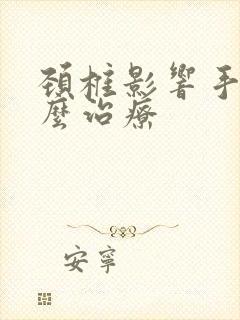 頸椎影響手
麼治療
安寧